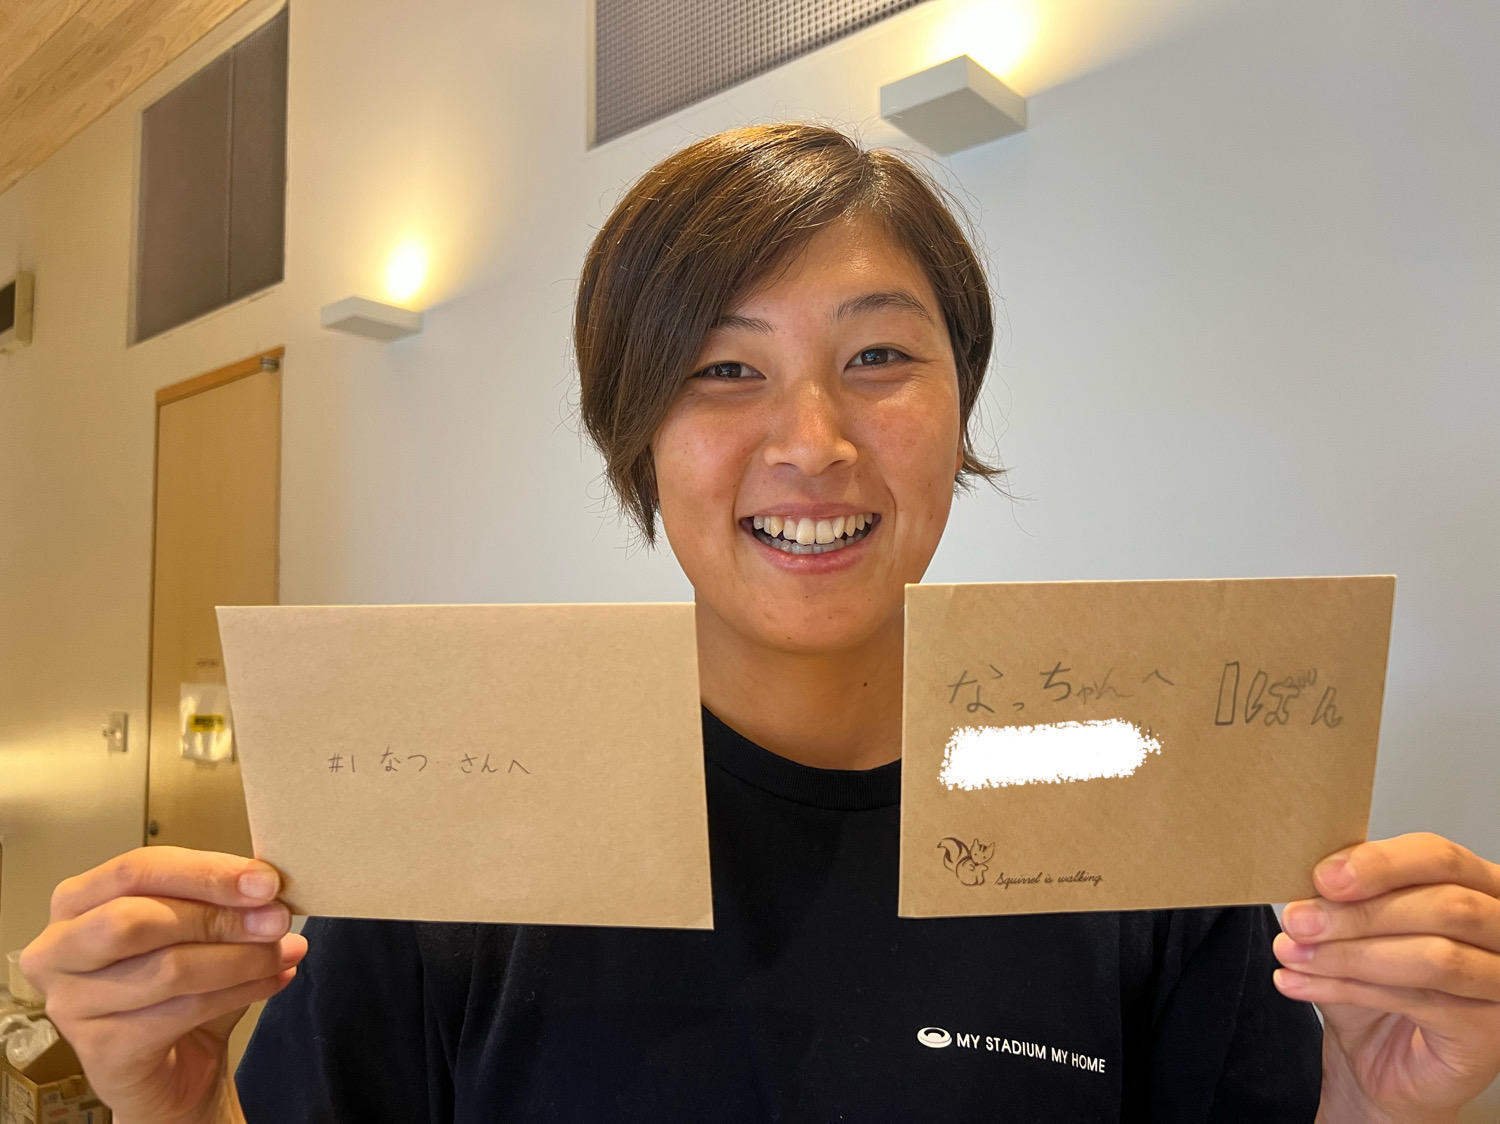 #1 なつ…さんへ
なっちゃんへ 1ばん
Squirrel is walking.
MY STADIUM MY HOME